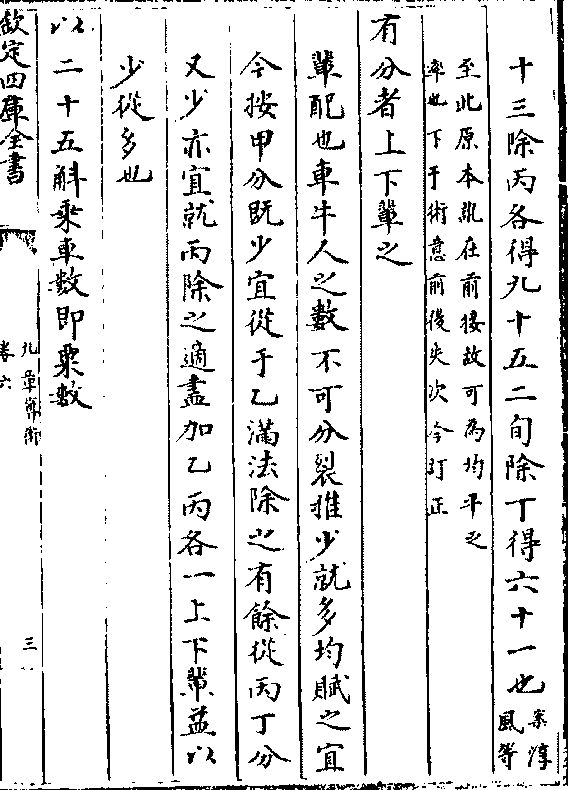 十三除丙各得九十五二旬除丁得六十一也案淳風等
至此原本訛在前接故可為均平之
率也下于術意前後失次今訂正
有分者上下輩之
輩配也車牛人之數不可分裂推少就多均賦之宜
今按甲分既少宜從于乙滿法除之有餘從丙丁分
又少亦宜就丙除之適盡加乙丙各一上下輩益以
少從多也
以二十五斛乘車數即粟數
欽定四庫全書
九章算術
卷六
三